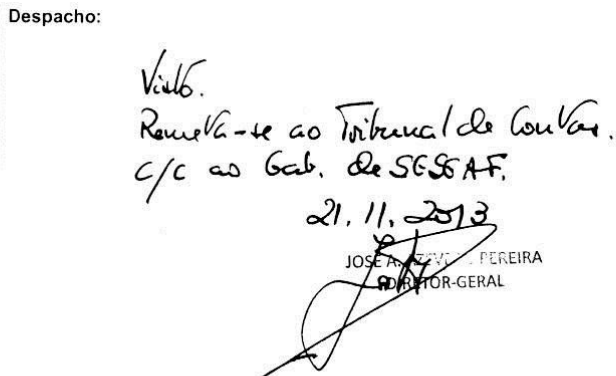 Despacho:
Visto.
Remeta-se ao Tribunal de Contas.
C/C ao Gab. de SESEAF.
21.11.2013
JOSÉ A. AZEVEDO PEREIRA
DIRETOR-GERAL